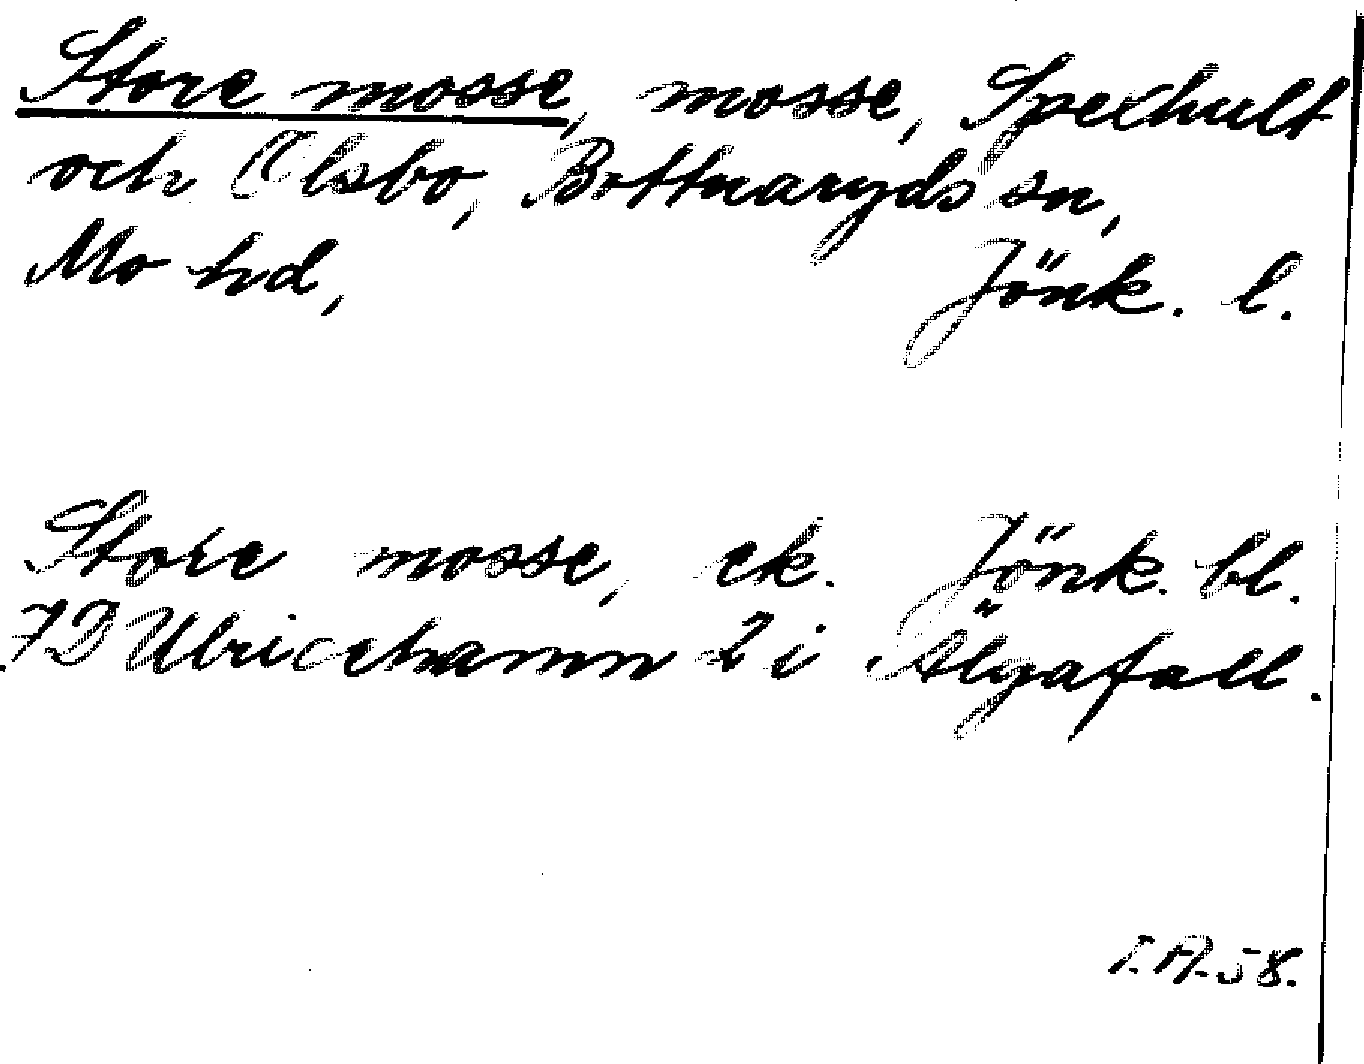 Store mosse, mosse, Spexhult
och Olsbo, Bottnaryds sn,
Mo hd, Jönk. l.
Store mosse, ek. Jönk. bl.
7D Ulricehamn 2 i Älgafall.
I.A. 58.